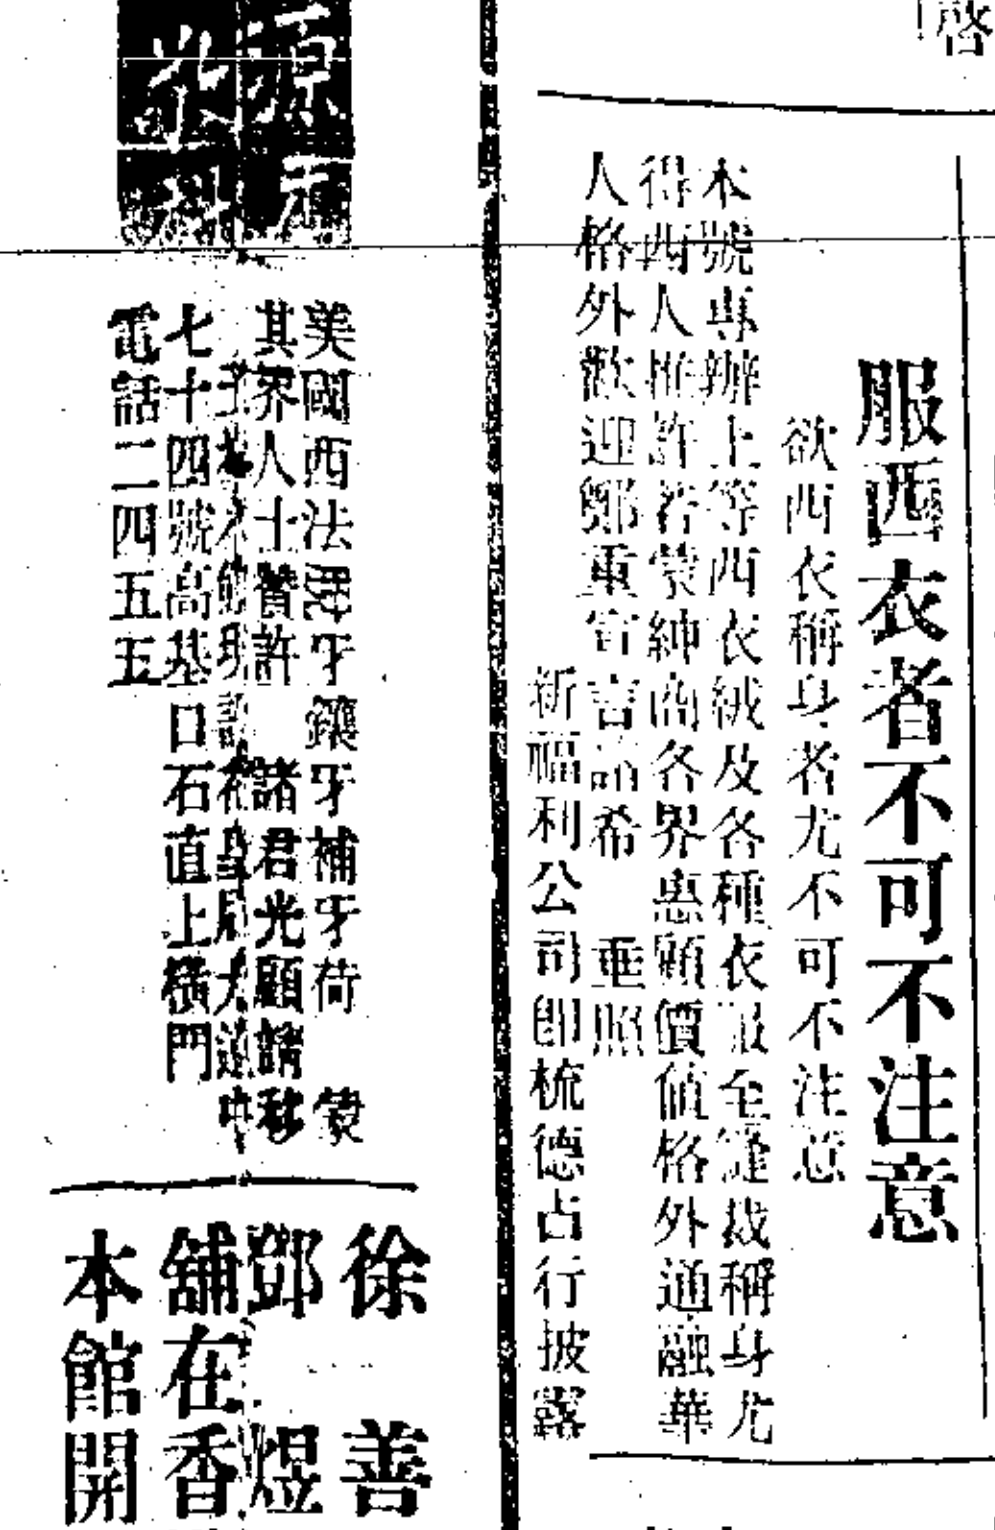 啓
服西衣者不可不注意
欲西衣稱身者尤不可不注意
本號專辦上等西衣絨及各種衣服至縫裁稱身尤
得西人推許若蒙紳商各界惠顧價值格外通融華
人格外歡迎鄭重宣言諸希 垂照
新福利公司即梳德占行披露
源
美國西法 牙鑲牙補牙荷 蒙
其界人士贊許 諸君光顧請移
七十四號高基口石直上橫門
電話二四五五
徐 善
鄧 煜
舖在香
本館開